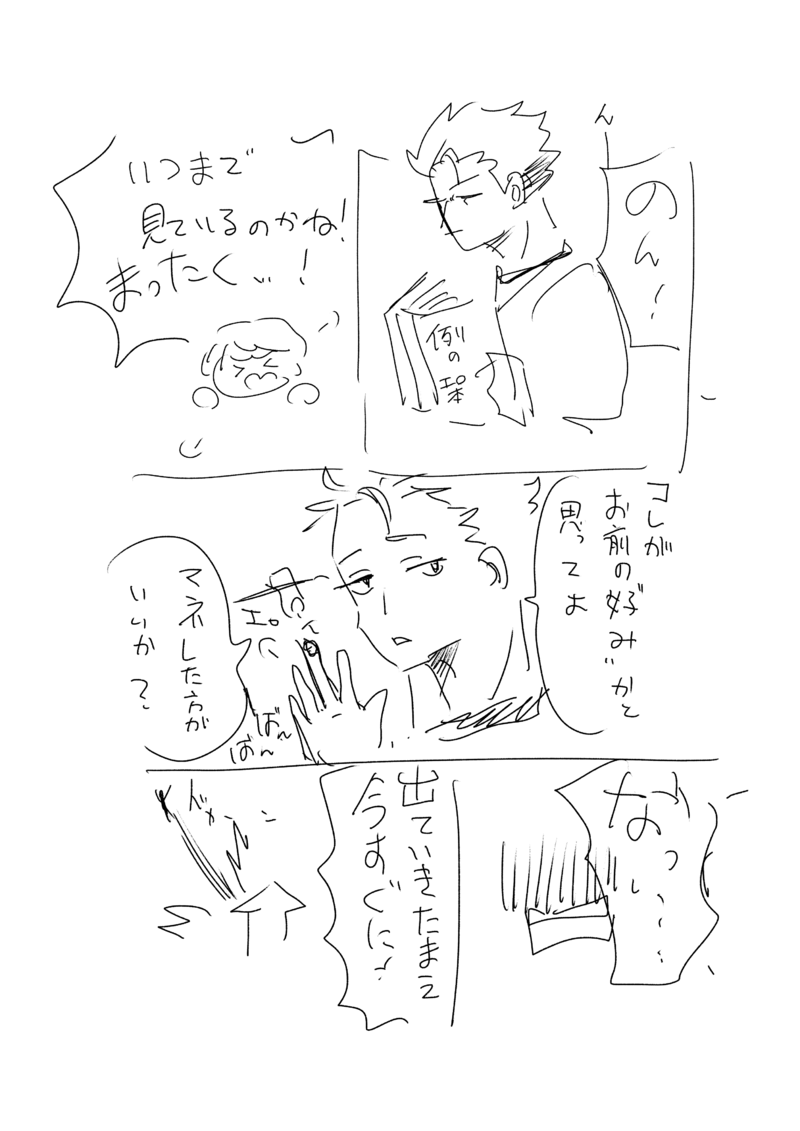 ん
のん!
例の
本
いつまで
見ているのかね!
まったくぃ!
コレが
お前の好みかと
思ってよ
マネした方が
いいか?
ばん
ばん
なっ…
出ていきたまえ
今すぐに!